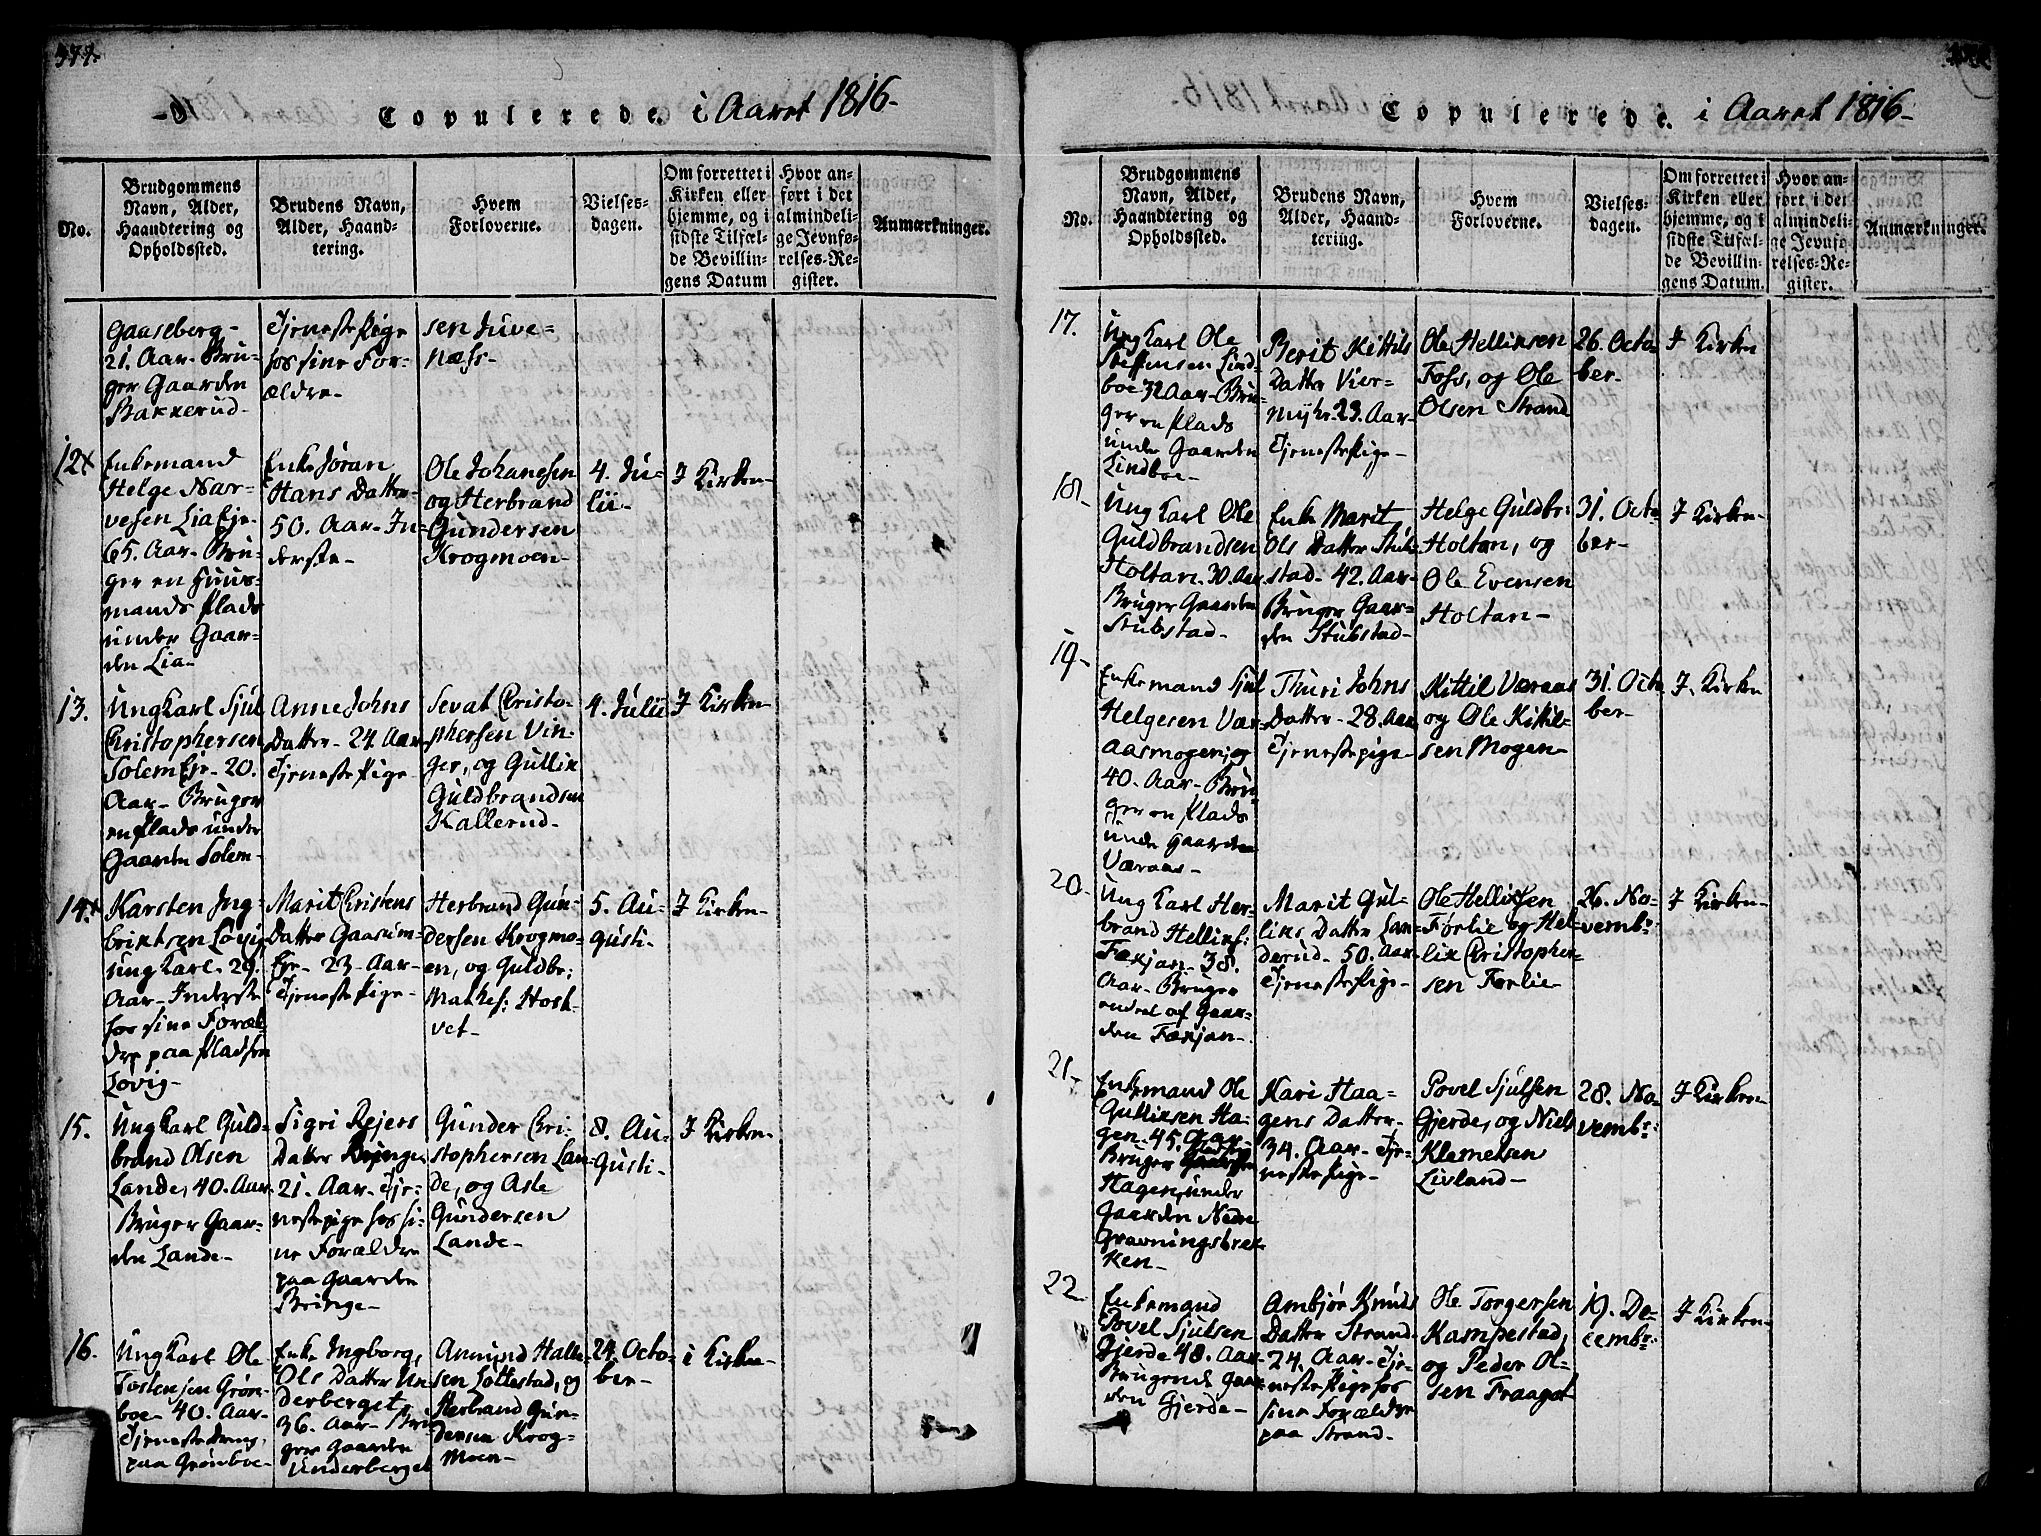 Copulerede. i Aaret 1816-
No.
Brudgommens
Navn, Alder,
Haandtering og
Opholdssted.
Brudens Navn,
Alder, Haand-
tering.
Hvem
Forloverne.
Vielses-
dagen.
Om forrettet i
Kirken eller
hjemme, og i
sidste Tilfæl-
de Bevillin-
gens Datum
Hvor an-
ført i det
almindeli-
ge Jevnfø-
relses-Re-
gister.
Anmærkninger.
Gaaseberg-
21. Aar- Bru-
ger Gaarden
Bakkerud-
Tjeneste Pige
hos sine For-
ældre-
sen Juve-
næss-
12
Enkemand
Helge Nar-
vesen Lia Eje-
65. Aar- Bru-
ger en Huus-
mands Plads
under Gaar-
den Lia-
Enke Jøran
Hans Datter-
50. Aar- In-
derste-
Ole Johanesen
og Herbrand
Gundersen
Krogmoen-
4. Ju-
lii-
I Kirken-
13.
Ung Karl Sjul
Christophersen
Solem Eje- 20.
Aar- Bruger
en Plads under
Gaarden Solem-
Anne Johns
Datter- 24. Aar
Tjeneste Pige-
Sevat Christo-
phersen Vin-
ger, og Gullik
Guldbrandsen
Kallerud-
4. Julii
I Kirken-
14.
Karsten Ing-
briktsen Løvig
Ung Karl- 29.
Aar- Inderste
hos sine Foræl-
dre paa Pladsen
Løvig-
Marit Cristens
Datter Gaasum-
Eje- 23- Aar-
Tjeneste Pige-
Herbrand Gun-
dersen Krogmo-
en, og Guldbr:
Mathes: Host-
vet-
5. Au-
gusti-
I Kirken-
15.
Ung Karl Guld-
brand Olsen
Lande, 40. Aar-
Bruger Gaar-
den Lande-
Sigri Rejers
Datter Bringe,
21. Aar- Tje-
nestepige hos si-
ne Forældre
paa Gaarden
Bringe-
Gunder Cri-
stophersen Lan-
de, og Asle
Gundersen
Lande-
8. Au-
gusti-
I Kirken-
16.
Ung Karl Ole
Tostensen Grøn-
boe- 40. Aar-
Tjeneste Dreng,
paa Grønboe-
Enke Ingborg,
Ols Datter Un-
derberget,
36. Aar- Bru-
ger Gaarden
Underberget
Amund Halle-
sen Loftestad, og
Herbrand Gun-
dersen Krog-
moen-
24. Octo-
ber-
i Kirken-
Copulerede. i Aaret 1816-
No.
Brudgommens
Navn, Alder,
Haandtering og
Opholdssted.
Brudens Navn,
Alder, Haand-
tering.
Hvem
Forloverne.
Vielses-
dagen.
Om forrettet i
Kirken eller
hjemme, og i
sidste Tilfæl-
de Bevillin-
gens Datum.
Hvor an-
ført i det
almindeli-
ge Jevnfø-
relses-Re-
gister.
Anmærkninger.
17.
Ung Karl Ole
Steffensen Lind-
boe 32 Aar- Bru-
ger en Plads
under Gaarden
Lindboe-
Berit Kittils
Datter Vier-
myhr- 23. Aar-
Tjeneste Pige-
Ole Helliksen
Foss, og Ole
Olsen Strand
26. Octo-
ber-
I Kirken
18.
Ung Karl Ole
Guldbrandsen
Holtan- 30. Aar
Bruger Gaarden
Stubstad-
Enke Marit
Ols Datter Stub-
stad- 42. Aar-
Bruger Gaar-
den Stubstad-
Helge Guldbr-
Holtan, og
Ole Evensen
Holtan-
31. Octo
ber-
I Kirken-
19-
Enkemand Sjul
Helgesen Vær-
aasmogen,
40. Aar- Bru-
ger en Plads
under Gaarden
Væraas-
Thuri Johns
Datter- 28. Aar
Tjenestepige-
Kittil Væraas
og Ole Kittil-
sen Mogen-
31. Octo
ber-
I. Kirken
20-
Ung Karl Her-
brand Helliks:
Faxjan- 38.
Aar- Bruger
endel af Gaar-
den Faxjan-
Marit Gul-
liks Datter Lan-
derud- 50. Aar-
Tjeneste Pige-
Ole Helliksen
Førlie og Hel-
lik Christopher-
sen Førlie-
26. No-
vembr:
I Kirken-
21-
Enkemand Ole
Gulliksen Ha-
gen- 45. Aar-
Bruger Pladsen
Hagen, under
Gaarden Nedre
Gravningsbræk-
ken-
Kari Haa-
gens Datter-
34. Aar- Tje-
neste Pige-
Povel Sjulsen
Gjerde, og Niels
Klemetsen
Livland-
28. No-
vembr:
I Kirken-
22
Enkemand
Povel Sjulsen
Gjerde 48. Aar-
Brugende Gaar-
den Gjerde-
Ambjør Knuds
Datter Strand-
24. Aar- Tje-
neste Pige hos
sine Forældre
paa Strand-
Ole Torgersen
Kampestad,
og Peder Ol-
sen Fraagot
19. De-
cembr:
I Kirken-